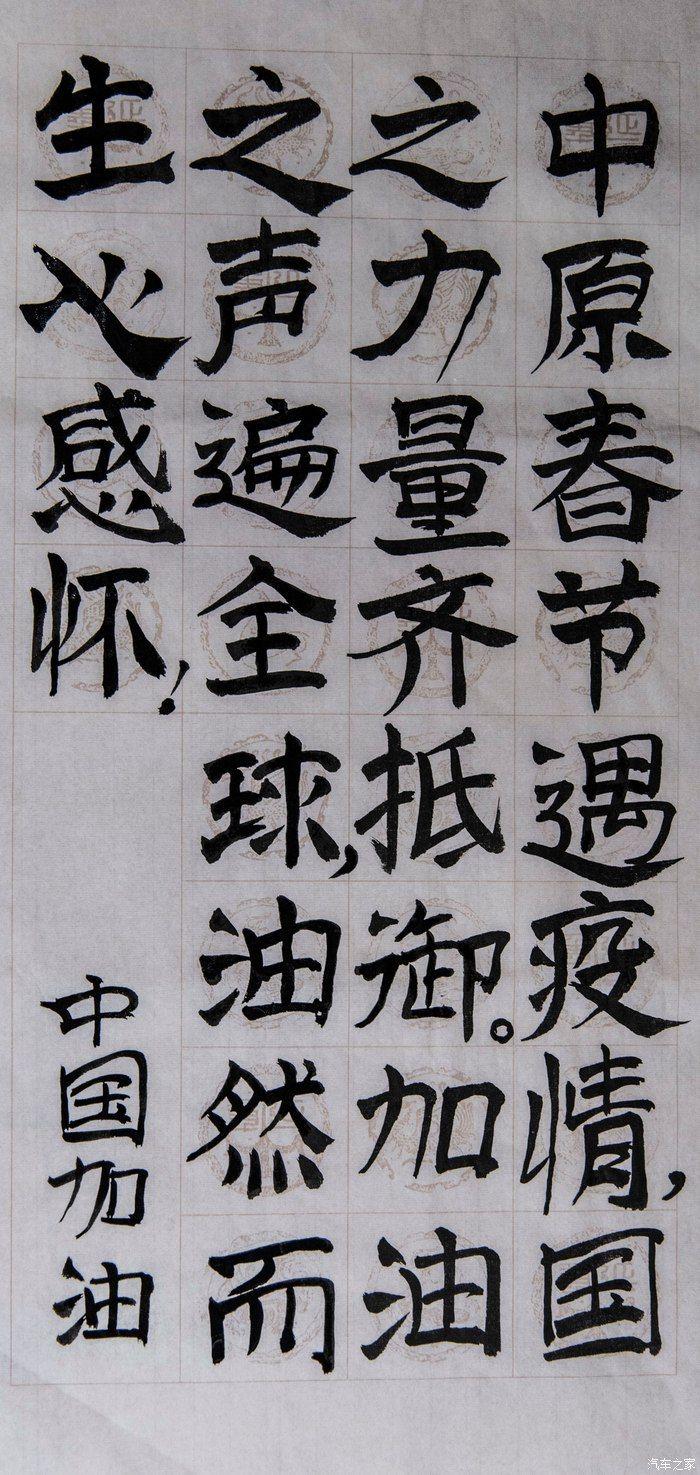 中原春节遇疫情,国
之力量齐抵御。加油
之声遍全球,油然而
生心感怀!
中国加油
汽车之家